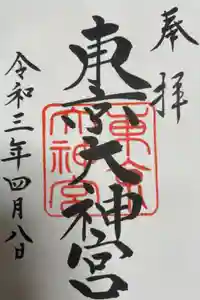 奉拝
東京大神宮
東京大神宮
令和三年四月八日